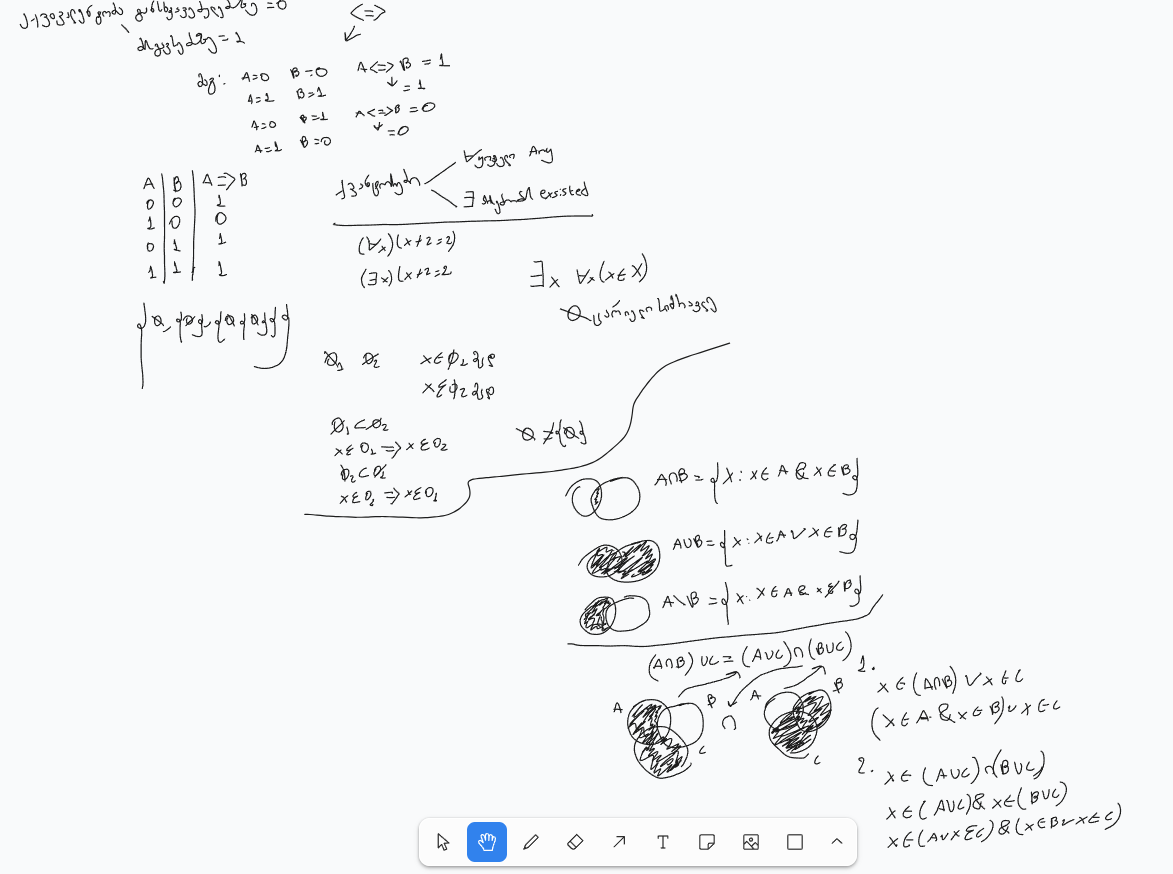 ექვივალენტობა განსხვავებულებაზე =0
<=>
მსგავსებაზე = 1
მაგ: A=0 B=0 A<=>B = 1
A=1 B=1 =1
A=0 B=1 A<=>B =0
A=1 B=0 =0
A B A=>B
0 0 1
1 0 0
0 1 1
1 1 1
∀ყოველი Any
ქვანტორები
∃ exsisted
(∀x)(x+2=2)
(∃x)(x+2=2
∃x ∀x(x∈X)
∅ ცარიელი სიმრავლე
{∅, {∅}, {∅{∅}}}
∅1 ∅2 x∈∅1 მცდ
x∈∅2 მცდ
∅1⊂∅2
x∈∅1=>x∈∅2
∅≠{∅}
∅2⊂∅1
x∈∅2=>x∈∅1
A∩B={x:x∈A & x∈B}
A∪B={x:x∈A∨x∈B}
A\B={x:x∈A & x∉B}
(A∩B)∪C=(A∪C)∩(B∪C)
A B C ∩ A B C
1.
x∈(A∩B)∨x∈C
(x∈A & x∈B)∨x∈C
2. x∈(A∪C)∩(B∪C)
x∈(A∪C)& x∈(B∪C)
x∈(A∨x∈C)&(x∈B∨x∈C)
T